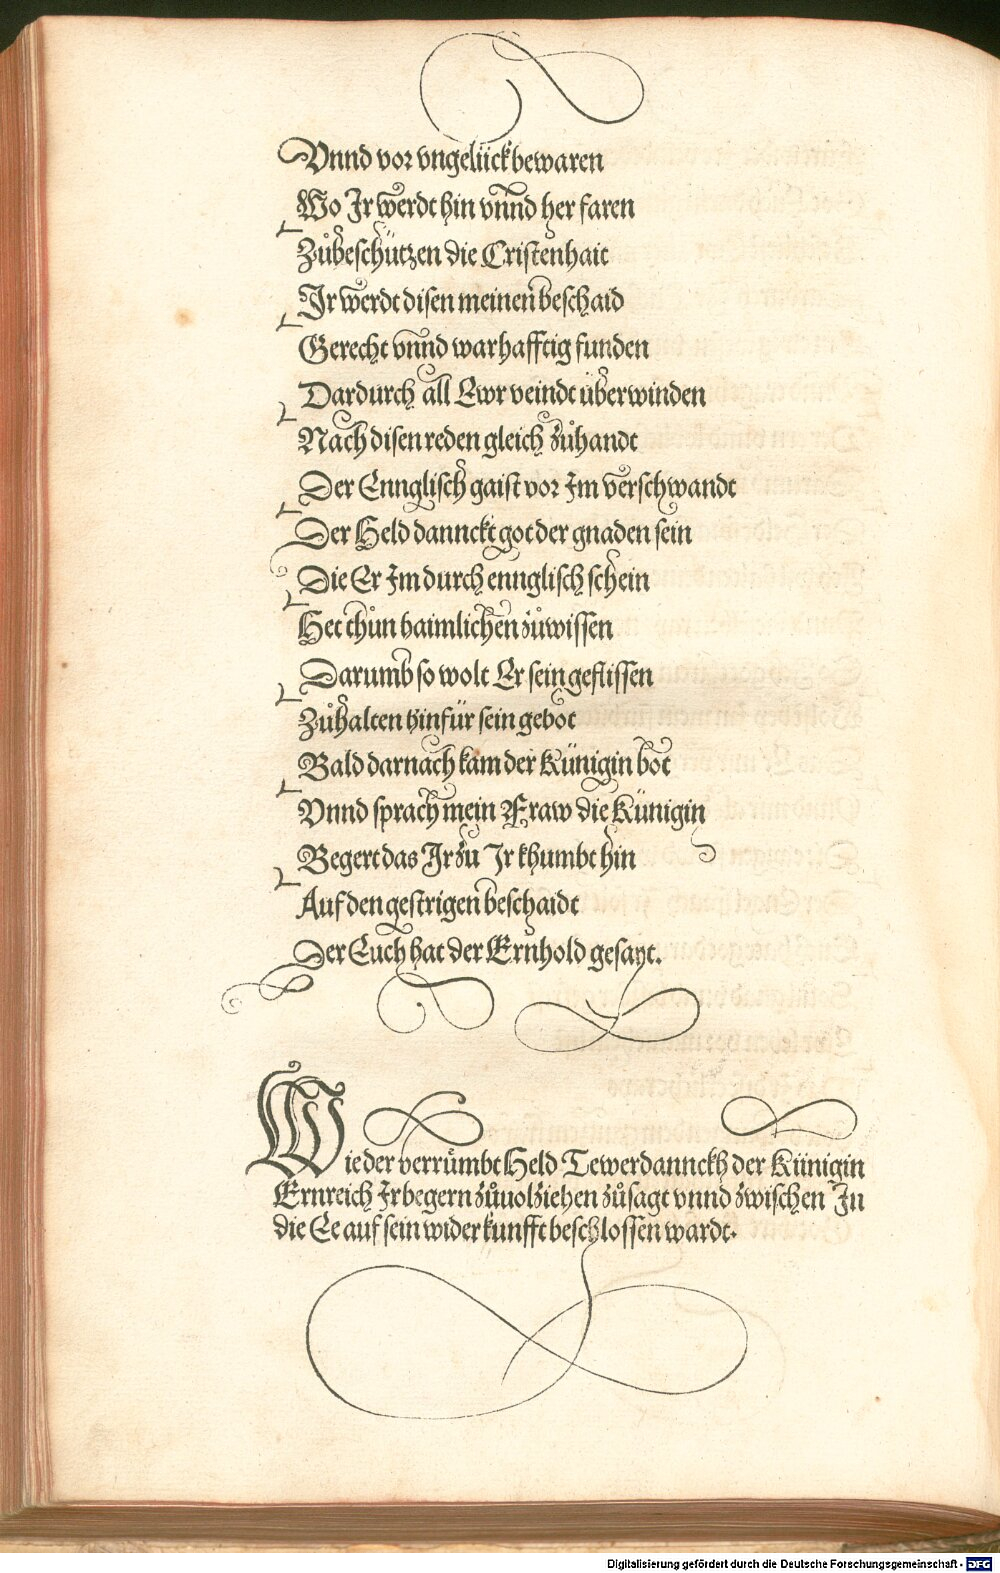 Vnnd vor vngelück bewaren
Wo Ir werdt hin vnnd her faren
Zůbeschützen die Cristenhait
Ir werdt disen meinen beschaid
Gerecht vnnd warhafftig funden
Dardurch all Ewr veindt überwinden
Nach disen reden gleich zůhandt
Der Ennglisch gaist vor Im verschwandt
Der Held dannckt got der gnaden sein
Die Er Im durch ennglisch schein
Het thůn haimlichen zůwissen
Darumb so wolt Er sein geflissen
Zůhalten hinfür sein gebot
Bald darnach kam der Künigin bot
Vnnd sprach mein Fraw die Künigin
Begert das Ir zu Ir khumbt hin
Auf den gestrigen beschaidt
Der Euch hat der Ernhold gesayt.
Wie der verrůmbt Held Tewerdannckh der Künigin
Ernreich Ir begern zůuolziehen zůsagt vnnd zwischen In
die Ee auf sein widerkunfft beschlossen wardt.
Digitalisierung gefördert durch die Deutsche Forschungsgemeinschaft - DFG